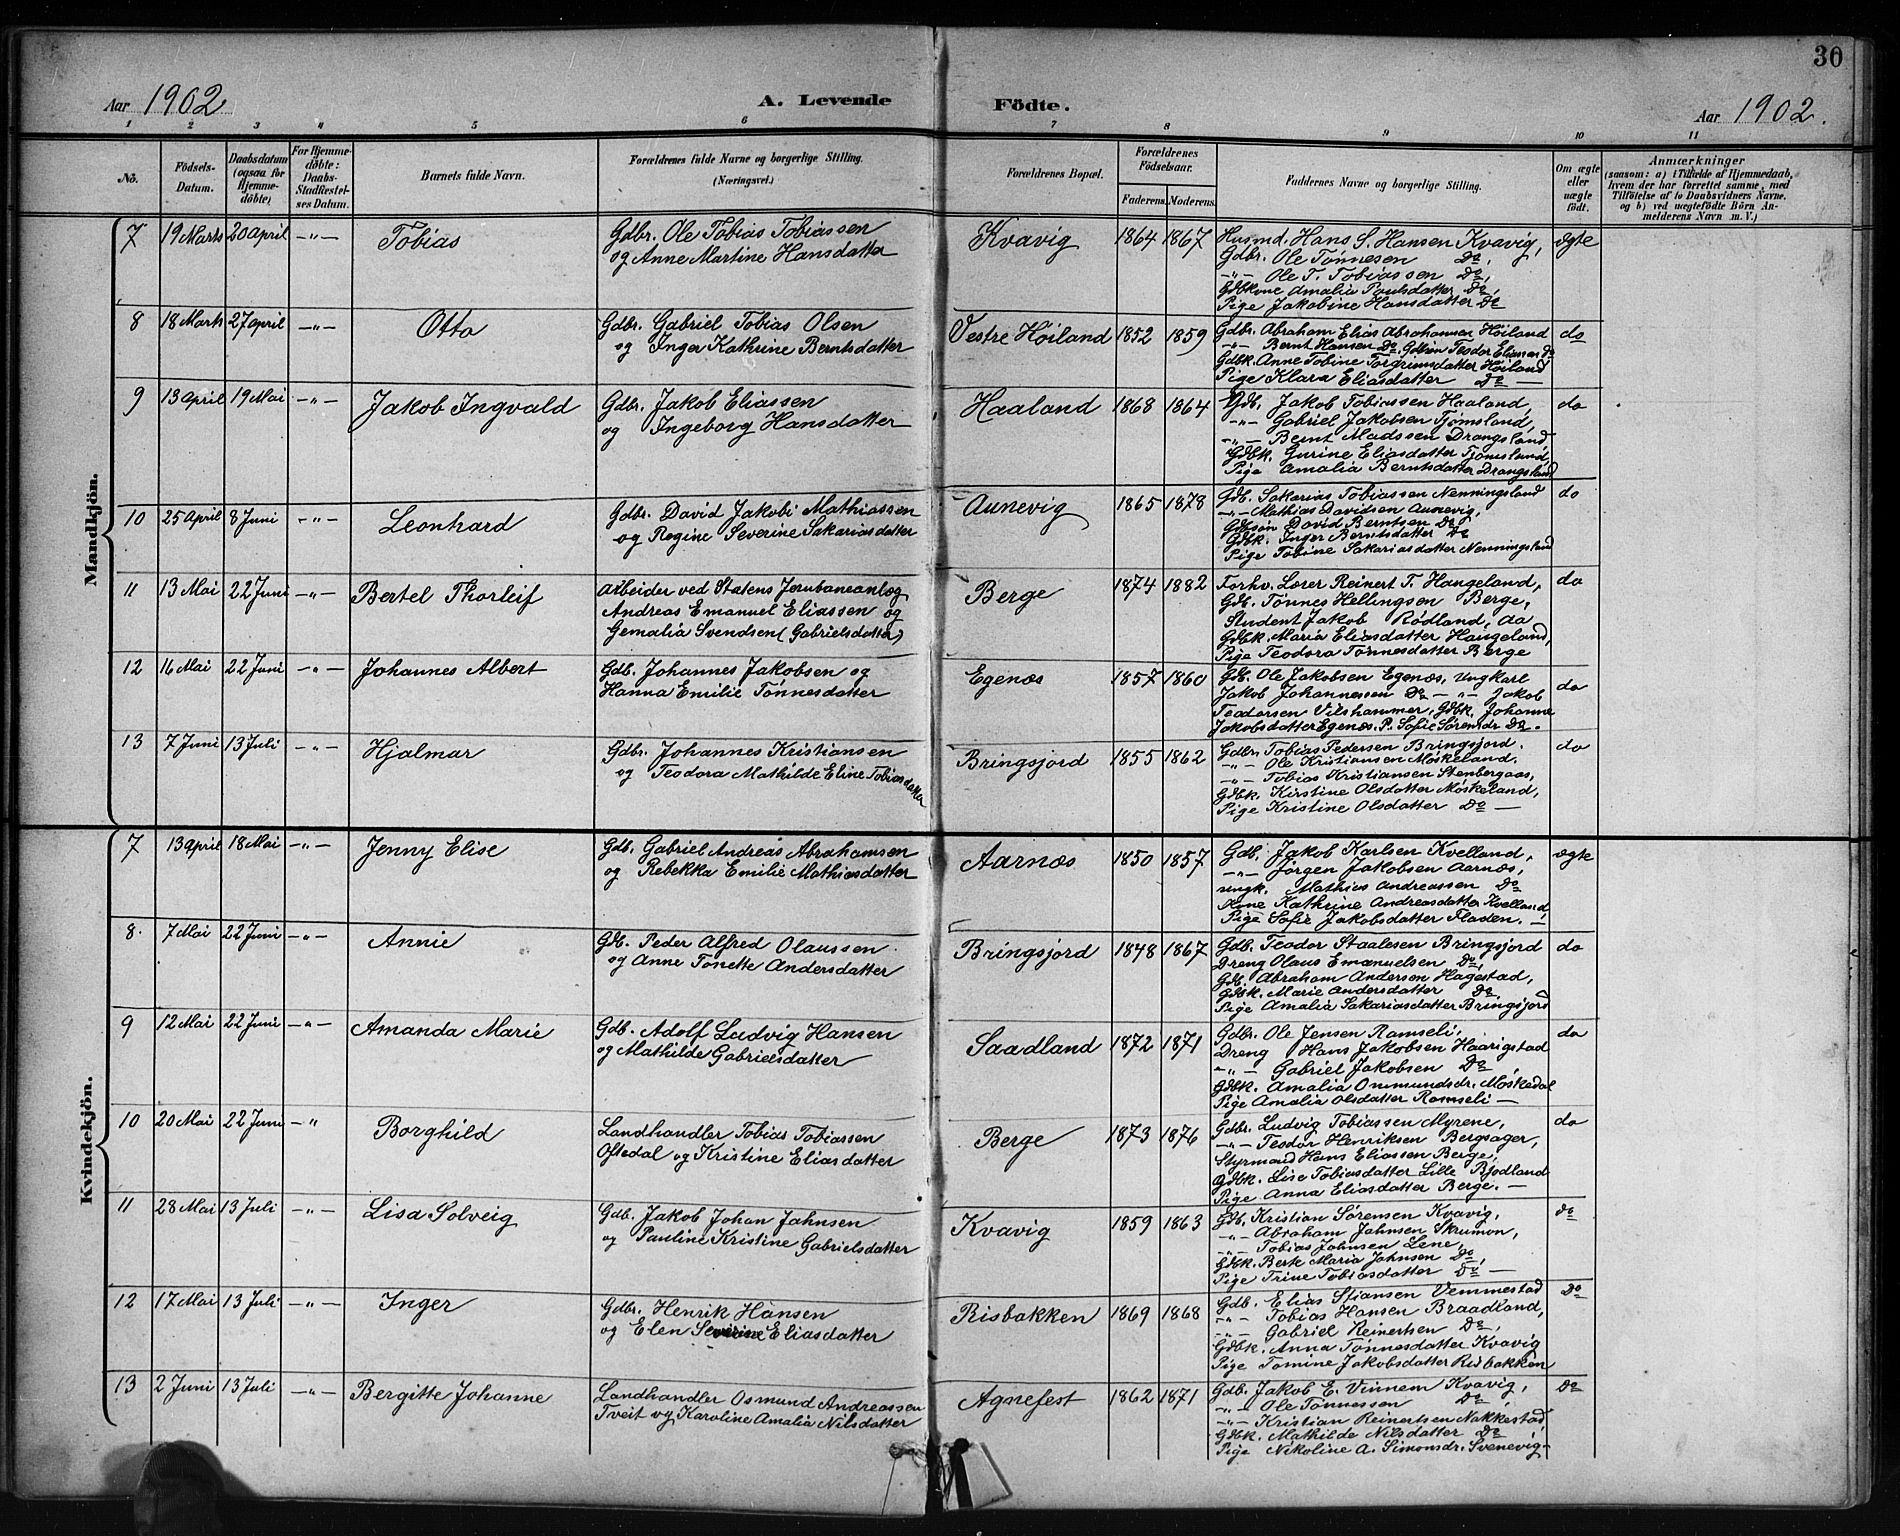 30
Aar 1902
A. Levende Födte.
Aar 1902.
1 2 3 4 5 6 7 8 9 10 11
No. Födsels-Datum. Daabsdatum (ogsaa for Hjemmedöbte) For Hjemmedöbte: Daabs-Stadfestelses Datum. Barnets fulde Navn. Forældrenes fulde Navne og borgerlige Stilling. (Næringsvei.) Forældrenes Bopæl. Forældrenes Födselsaar. Faderens. Moderens. Faddernes Navne og borgerlige Stilling. Om ægte eller uægte födt. Anmærkninger (saasom: a) i Tilfælde af Hjemmedaab, hvem der har forrettet samme, med Tilföielse af to Daabsvidners Navne. og b) ved uægtefödte Börn Anmelderens Navn m. V.)
Mandkjön.
7 19 Marts 20 April -"- Tobias Gdbr. Ole Tobias Tobiassen Kvavig 1864 1867 Husmd. Hans S. Hansen Kvavig, ægte
og Anne Martine Hansdatter Gdbr. Ole Tønnesen Do,
-"- Ole T. Tobiassen Do,
Gdbkone Amalia Paulsdatter Do,
Pige Jakobine Hansdatter Do
8 18 Marts 27 april -"- Otto Gdbr. Gabriel Tobias Olsen Vestre Høiland 1852 1859 Gdbr. Abraham Elias Abrahamsen Høiland do
og Inger Kathrine Berntsdatter -"- Bernt Hansen Do, Gdbsøn Teodor Eliassen Do
Gdbk. Anne Tobine Torgrimsdatter Høiland
Pige Klara Eliasdatter Do —
9 13 April 19 Mai -"- Jakob Ingvald Gdbr. Jakob Eliassen Haaland 1868 1864 Gdb. Jakob Tobiassen Haaland, do
og Ingeborg Hansdatter -"- Gabriel Jakobsen Tjømsland,
-"- Bernt Madssen Drangsland
Gdbk. Gurine Eliasdatter Tjømsland,
Pige Amalia Berntsdatter Drangsland
10 25 April 8 Juni -"- Leonhard Gdbr. David Jakobi Mathiassen Aunevig 1865 1878 Gdb. Sakarias Tobiassen Nenningsland do
og Regine Severine Sakariasdatter -"- Mathias Davidsen Aunevig,
Gdbsøn David Berntsen Do,
Gdbk. Inger Berntsdatter Do
Pige Tobine Sakariasdatter Nenningsland
11 13 Mai 22 Juni -"- Bertel Thorleif Arbeider ved Statens Jernbaneanlæg Berge 1874 1882 Forhv. Lærer Reinert T. Haugeland, do
Andreas Emanuel Eliassen og Gdb. Tønnes Hellingsen Berge,
Gemalia Svendsen (Gabrielsdatter) Student Jakob Rødland, da
Gdbk. Maria Eliasdatter Haugeland,
Pige Teodora Tønnesdatter Berge
12 16 Mai 22 Juni -"- Johannes Albert Gdb. Johannes Jakobsen og Egenæs 1857 1860 Gdb. Ole Jakobsen Egenæs, Ungkarl do
Hanna Emilie Tønnesdatter Jakob Johannessen Do — -"- Jakob
Teodorsen Vilshammer, Gdbk. Johanne
Jakobsdatter Egenæs. P. Sofie Sørensdr Do.
13 7 Juni 13 Juli -"- Hjalmar Gdbr. Johannes Kristiansen Bringsjord 1855 1862 Gdbr. Tobias Pedersen Bringsjord. do
og Teodora Mathilde Eline Tobiasdatter -"- Ole Kristiansen Møskeland,
-"- Tobias Kristiansen Stenbergaas,
Gdbk. Kirstine Olsdatter Møskeland,
Pige Kristine Olsdatter Do —
Kvindekjön.
7 13 april 18 Mai -"- Jenny Elise Gdb. Gabriel Andreas Abrahamsen Aarnæs 1850 1857 Gdb. Jakob Karlsen Kvelland, ægte
og Rebekka Emilie Mathiasdatter -"- Jørgen Jakobsen Aarnæs,
Ungk. Mathias Andreassen Do
Kone Kathrine Andreasdatter Kvelland,
Pige Sofie Jakobsdatter Fladen. —
8. 7 Mai 22 Juni -"- Annie Gdb. Peder Alfred Olaussen Bringsjord 1848 1867 Gdb. Teodor Staalesen Bringsjord do
og Anne Tonette Andersdatter Dreng Olaus Emanuelsen Do,
Gdb. Abraham Andersen Hagestad,
Gdbk. Marie Andersdatter Do,
Pige Amalia Sakariasdatter Bringsjord
9 12 Mai 22 Juni -"- Amanda Marie Gdb. Adolf Ludvig Hansen Saadland 1872 1871 Gdbr. Ole Jensen Ramseli, do
og Mathilde Gabrielsdatter Dreng Hans Jakobsen Haarigstad
-"- Gabriel Jakobsen Do,
Gdbk. Amalia Onsmundsdr. Møskedal
Pige Amalia Olsdatter Ramseli —
10 20 Mai 22 Juni -" Borghild Landhandler Tobias Tobiassen Berge 1873 1876 Gdbr. Ludvig Tobiassen Myrene, do
Oftedal og Kristine Eliasdatter -"- Teodor Henriksen Bergsager,
Styrmand Hans Eliassen Berge,
Gdbk. Lise Tobiasdatter Lille Bjodland
Pige Anna Eliasdatter Berge. —
11 28 Mai 13 Juli -"- Lisa Solveig Gdb. Jakob Johan Jahnsen Kvavig 1859 1863 Gdb. Kristian Sørensen Kvavig, do
og Pauline Kristine Gabrielsdatter -"- Abraham Jahnsen Skrumon,
-"- Tobias Johnsen Lene,
Gdbk. Berte Maria Jahnsen Do,
Pige Trine Tobiasdatter Do —
12 17 Mai 13 Juli -"- Inger Gdbr. Henrik Hansen Risbakken 1869 1868 Gdb. Elias Stiansen Vemmestad Do
og Elen Severine Eliasdatter -"- Tobias Hansen Braadland,
-"- Gabriel Reinertsen Do,
Gdbk. Anna Tønnesdatter Kvavig
Pige Tomine Jakobsdatter Risbakken
13 2 Juni 13 Juli -"- Bergitte Johanne Landhandler Osmund Andreassen Agnefest 1862 1871 Gdb. Jakob E. Vinnem Kvavig, Do
Tveit og Karoline Amalia Nilsdatter -"- Ole Tønnessen Do,
-"- Kristian Reinertsen Nakkestad,
Gdbk. Mathilde Nilsdatter Do,
Pige Nikoline A. Simonsdr. Svenevig-